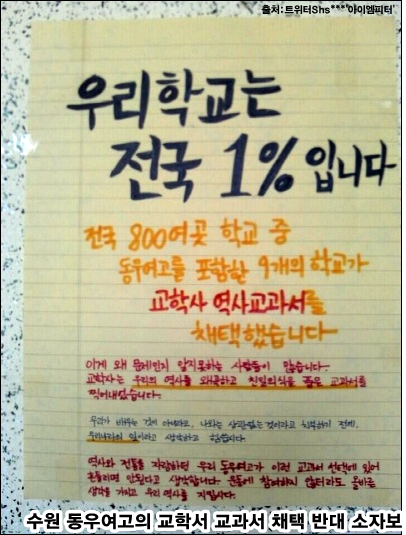 출처:트위터Shs***'아이엠피터'
우리학교는
전국 1% 입니다
전국 800여곳 학교 중
동우여고를 포함한 9개의 학교가
교학사 역사교과서를
채택했습니다
이게 왜 문제인지 알지못하는 사람들이 많습니다.
교학사는 우리의 역사를 왜곡하고 친일의식을 품은 교과서를
찍어내었습니다.
우리가 배우는 것이 아니라고, 나와는 상관없는 것이라고 치부하기 전에,
우리나라의 일이라고 생각하고
역사와 전통을 자랑하던 우리 동우여고가 이런 교과서 선택에 있어
흔들리면 안된다고 생각합니다. 운동에 참여하지 않더라도 올바른
생각을 가지고 우리 역사를 지킵시다.
수원 동우여고의 교학서 교과서 채택 반대 소자보